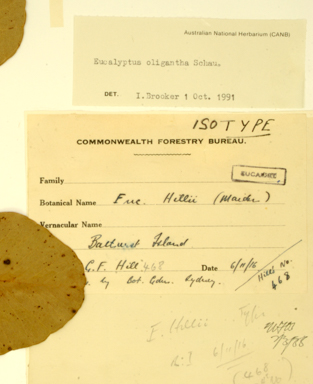 Australian National Herbarium (CANB)
Eucalyptus oligantha Schau.
DET. I.Brooker 1 Oct. 1991
ISOTYPE
COMMONWEALTH FORESTRY BUREAU.
EUCAMREE
Family
Botanical Name Euc. Hillii (Maiden)
Vernacular Name
Bathurst Island
G.F. Hill 468 Date 6/11/16
Hill's No. 468
by Bot. Gdn. Sydney.
E. Hillii Type
6/11/16
(468